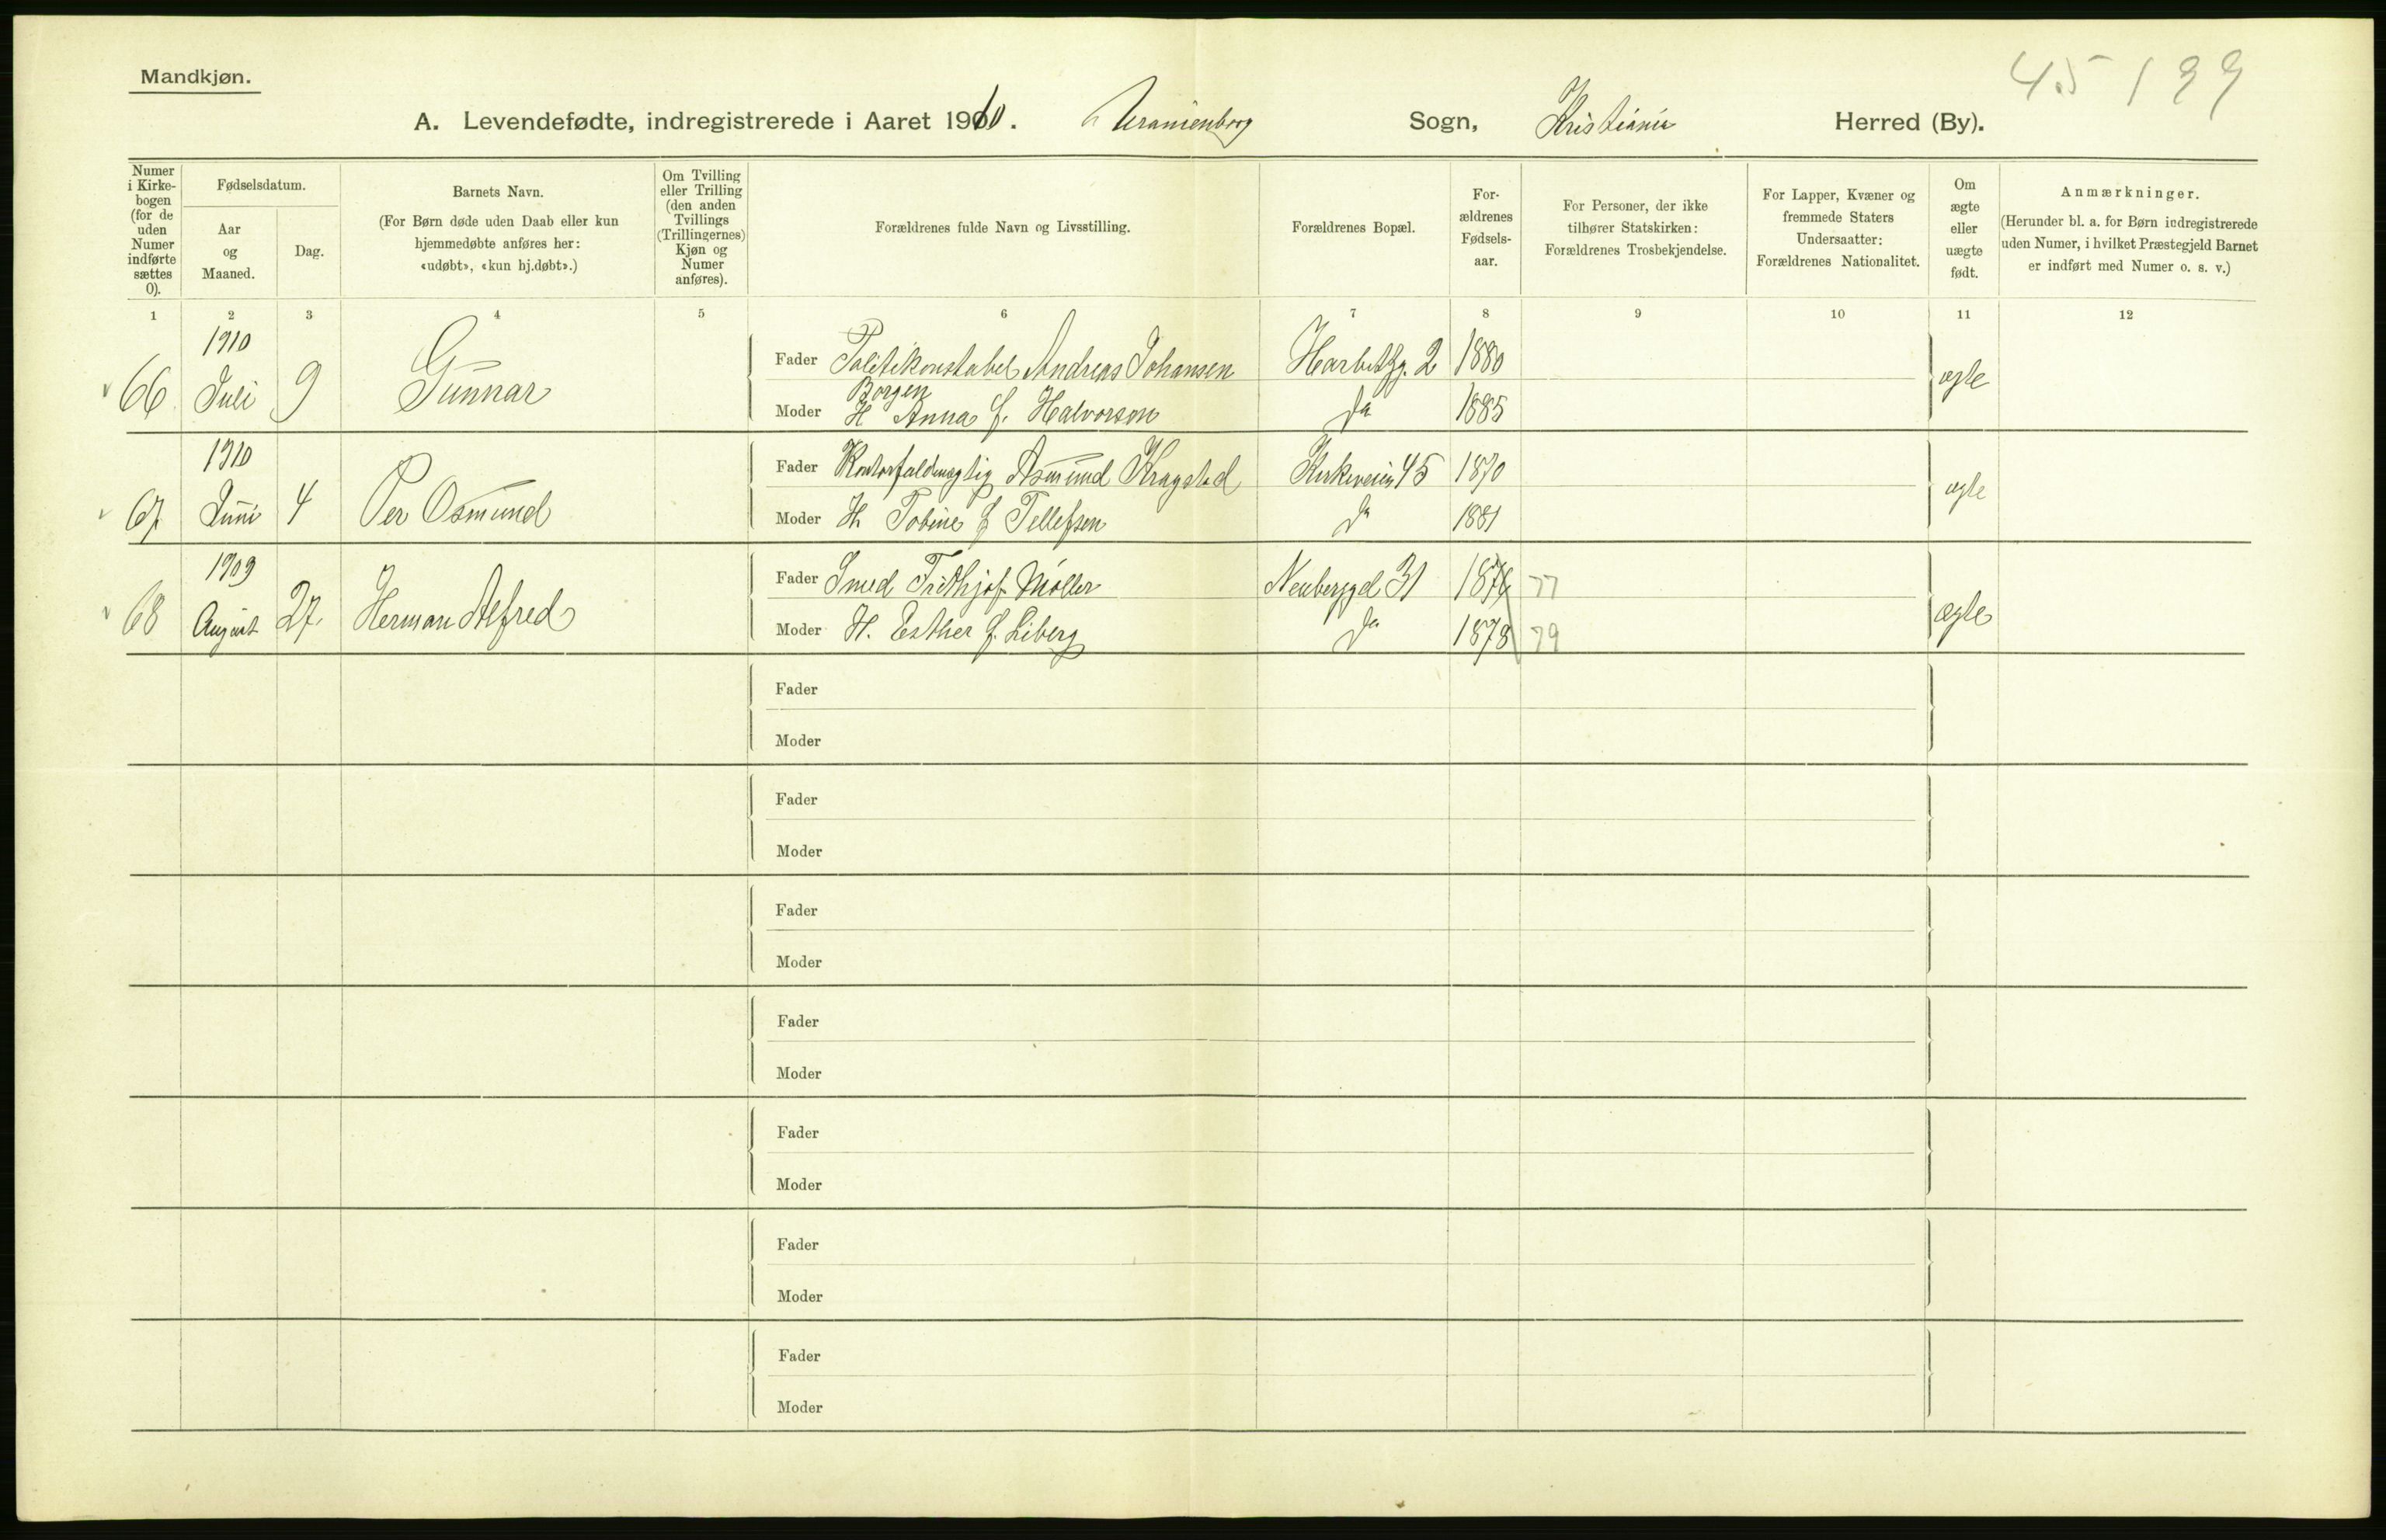 45 199
Mandkjøn.
A. Levendefødte, indregistrerede i Aaret 1910. Uranienborg Sogn, Kristiania Herred (By).
Numer i Kirkebogen (for de uden Numer indførte sættes 0).
Fødselsdatum.
Aar og Maaned.
Dag.
Barnets Navn.
(For Børn døde uden Daab eller kun hjemmedøbte anføres her: «udøbt», «kun hj.døbt».)
Om Tvilling eller Trilling (den anden Tvillings (Trillingernes) Kjøn og Numer anføres).
Forældrenes fulde Navn og Livsstilling.
Forældrenes Bopæl.
For- ældrenes Fødsels- aar.
For Personer, der ikke tilhører Statskirken: Forældrenes Trosbekjendelse.
For Lapper, Kvæner og fremmede Staters Undersaatter: Forældrenes Nationalitet.
Om ægte eller uægte født.
Anmærkninger.
(Herunder bl. a. for Børn indregistrerede uden Numer, i hvilket Præstegjeld Barnet er indført med Numer o. s. v.)
1 2 3 4 5 6 7 8 9 10 11 12
66 1910 Juli 9 Gunnar Fader Politikonstabel Andreas Johansen 2 1880 ægte
Borgen
Moder H Anna f. Halvorsen Do 1885
67 1910 Juni 4 Per Osmund Fader Kontorfuldmægtig Asmund Kragstad Kirkeveien 45 1870 ægte
Moder H Tobine f Tellefsen Do 1881
68 1909 August 27. Herman Alfred Fader Smed Frithjof Møller Neuberggd 31 1876 77 ægte
Moder H. Esther f. Liberg Do 1878 79
Fader
Moder
Fader
Moder
Fader
Moder
Fader
Moder
Fader
Moder
Fader
Moder
Fader
Moder